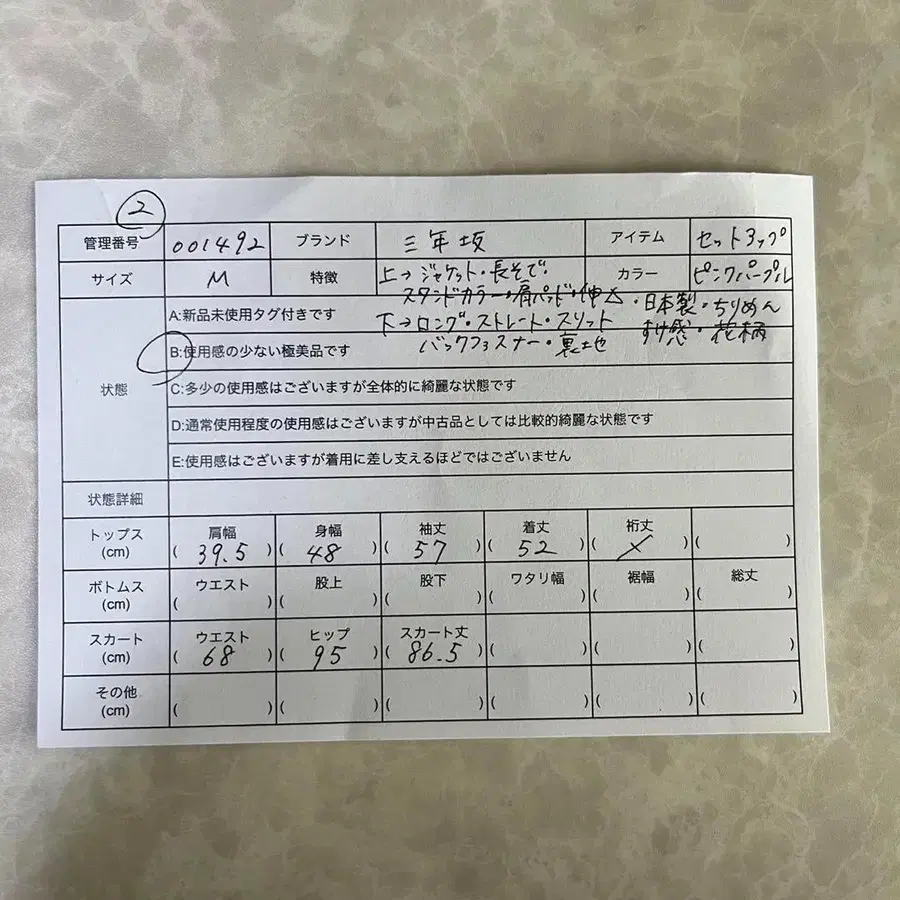 ②
管理番号 001492 ブランド 三年坂 アイテム セットアップ
サイズ M 特徴 上→ジャケット・長そで・ カラー ピンクパープル
スタンドカラー・肩パッド・ ・日本製・ちりめん
A:新品未使用タグ付きです
下→ロング・ストレート・スリット すけ感・花柄
バックファスナー・裏地
B:使用感の少ない極美品です
状態 C:多少の使用感はございますが全体的に綺麗な状態です
D:通常使用程度の使用感はございますが中古品としては比較的綺麗な状態です
E:使用感はございますが着用に差し支えるほどではございません
状態詳細
トップス 肩幅 身幅 袖丈 着丈 裄丈
(cm) (39.5) (48) (57) (52) (×) ( )
ボトムス ウエスト 股上 股下 ワタリ幅 裾幅 総丈
(cm) ( ) ( ) ( ) ( ) ( ) ( )
スカート ウエスト ヒップ スカート丈
(cm) (68) (95) (86.5) ( ) ( ) ( )
その他
(cm) ( ) ( ) ( ) ( ) ( ) ( )